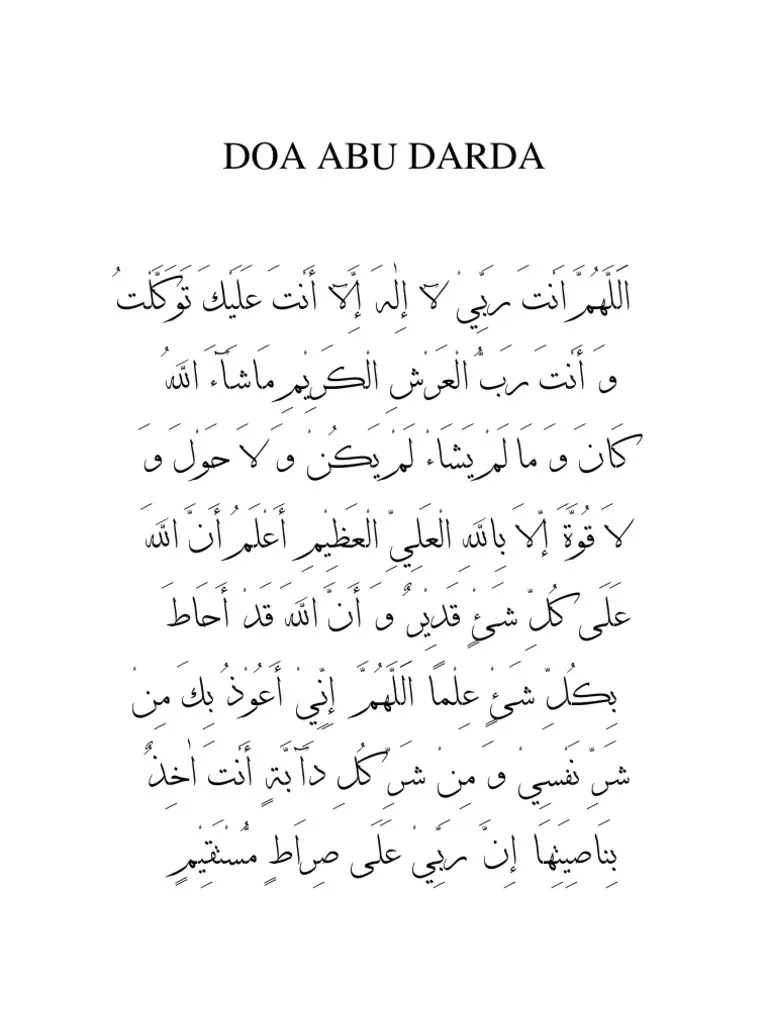 DOA ABU DARDA
اَللَّهُمَّ اَنْتَ رَبِّيْ لآ إِلٰهَ إِلَّآ أَنْتَ عَلَيْكَ تَوَكَّلْتُ
وَ أَنْتَ رَبُّ الْعَرْشِ الْكَرِيْمِ مَاشَآءَ اللهُ
كَانَ وَ مَا لَمْ يَشَاءْ لَمْ يَكُنْ وَ لَا حَوْلَ وَ
لَا قُوَّةَ إِلَّا بِاللهِ الْعَلِيِّ الْعَظِيْمِ أَعْلَمُ أَنَّ اللهَ
عَلَى كُلِّ شَيْءٍ قَدِيْرٌ وَ أَنَّ اللهَ قَدْ أَحَاطَ
بِكُلِّ شَيْءٍ عِلْماً اَللَّهُمَّ إِنِّيْ أَعُوْذُ بِكَ مِنْ
شَرِّ نَفْسِيْ وَ مِنْ شَرِّ كُلِ دَآبَّةٍ أَنْتَ اٰخِذٌ
بِنَاصِيَتِهَا إِنَّ رَبِّيْ عَلَى صِرَاطٍ مُّسْتَقِيْمٍ